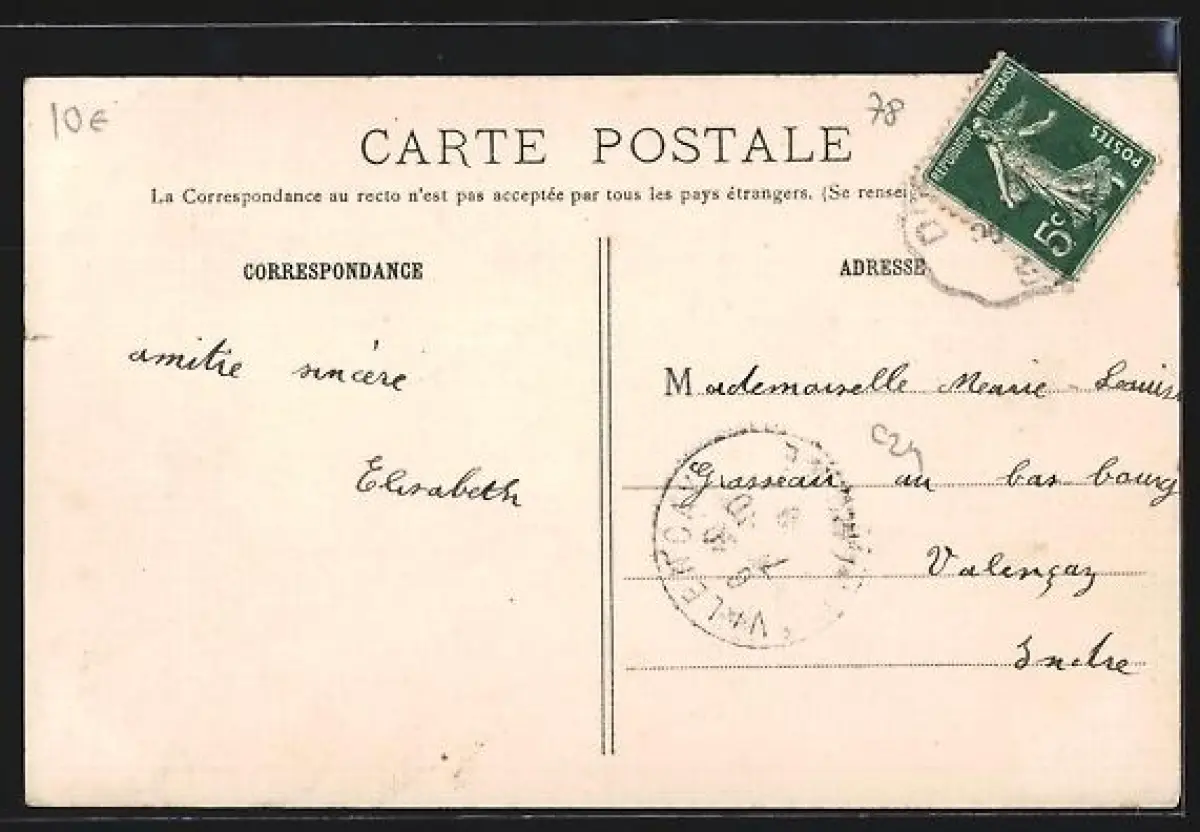 10€
78
CARTE POSTALE
La Correspondance au recto n'est pas acceptée par tous les pays étrangers. (Se rensei
REPUBLIQUE FRANÇAISE
POSTES
5c
CORRESPONDANCE
ADRESSE
amitie sincère
Elisabeth
Mademoiselle Marie-Louise
Grasseau au bas bourg
Valençay
Indre
VALENCAY